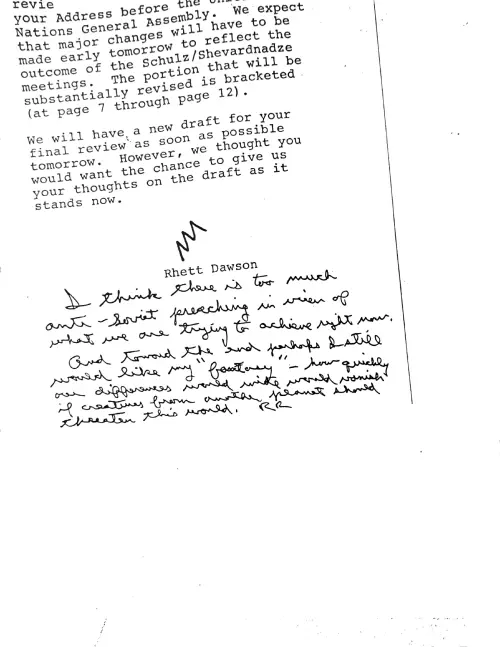 revie
your Address before the
Nations General Assembly. We expect
that major changes will have to be
made early tomorrow to reflect the
outcome of the Schulz/Shevardnadze
meetings. The portion that will be
substantially revised is bracketed
(at page 7 through page 12).
We will have a new draft for your
final review as soon as possible
tomorrow. However, we thought you
would want the chance to give us
your thoughts on the draft as it
stands now.
Rhett Dawson
I think there is too much
anti-Soviet preaching in view of
what we are trying to achieve right now.
And toward the end perhaps I still
would like my "fantasy" - how quickly
our differences world wide would vanish
if creatures from another planet should
threaten this world. RR